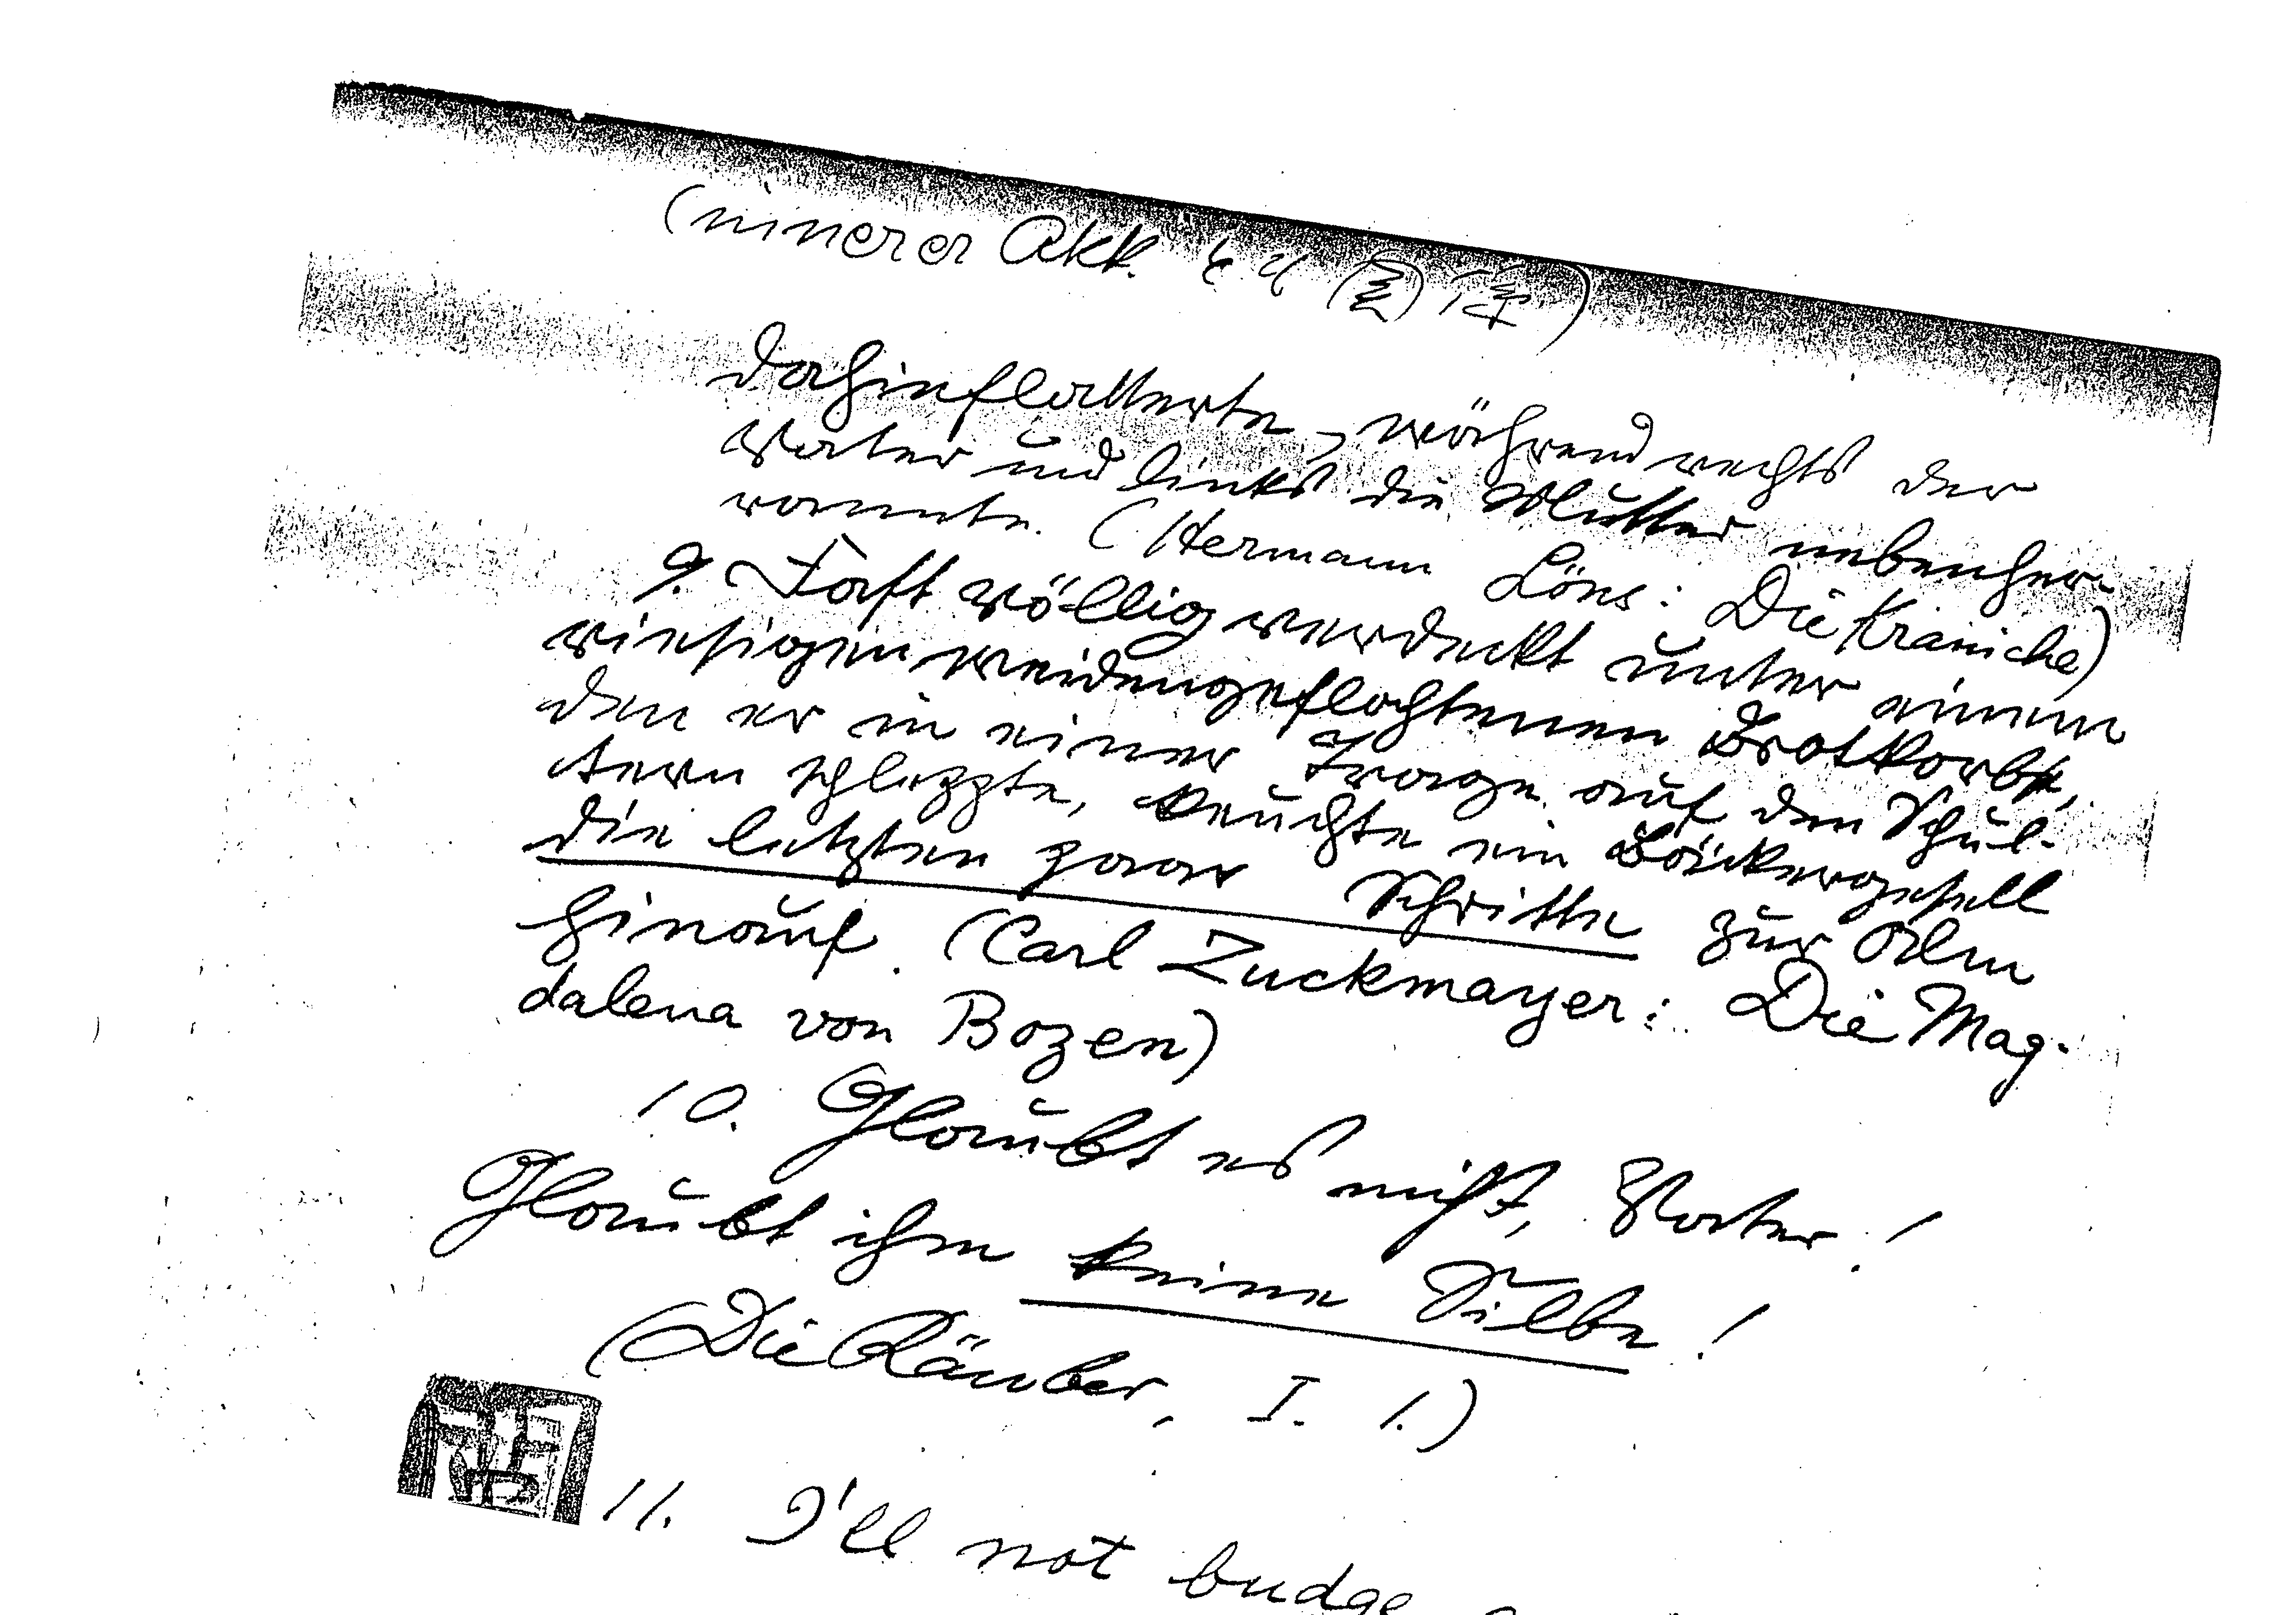 (innerer Akk.
dahinflatterte, während rechts der
Vater und links die Mutter nebenher-
rannte. (Hermann Löns: Die Kraniche)
9. Fast völlig verdeckt unter einem
riesigen weidengeflochtenen Brotkorbe,
den er in einer Trage auf den Schul-
tern schleppte, keuchte ein Bäckergesell
die letzten paar Schritte zur Alm
hinauf. (Carl Zuckmayer: Die Mag-
dalena von Bozen)
10. Glaubt es nicht, Vater!
Glaubt ihm keine Silbe!
(Die Räuber, I. 1.)
11. I'll not budge